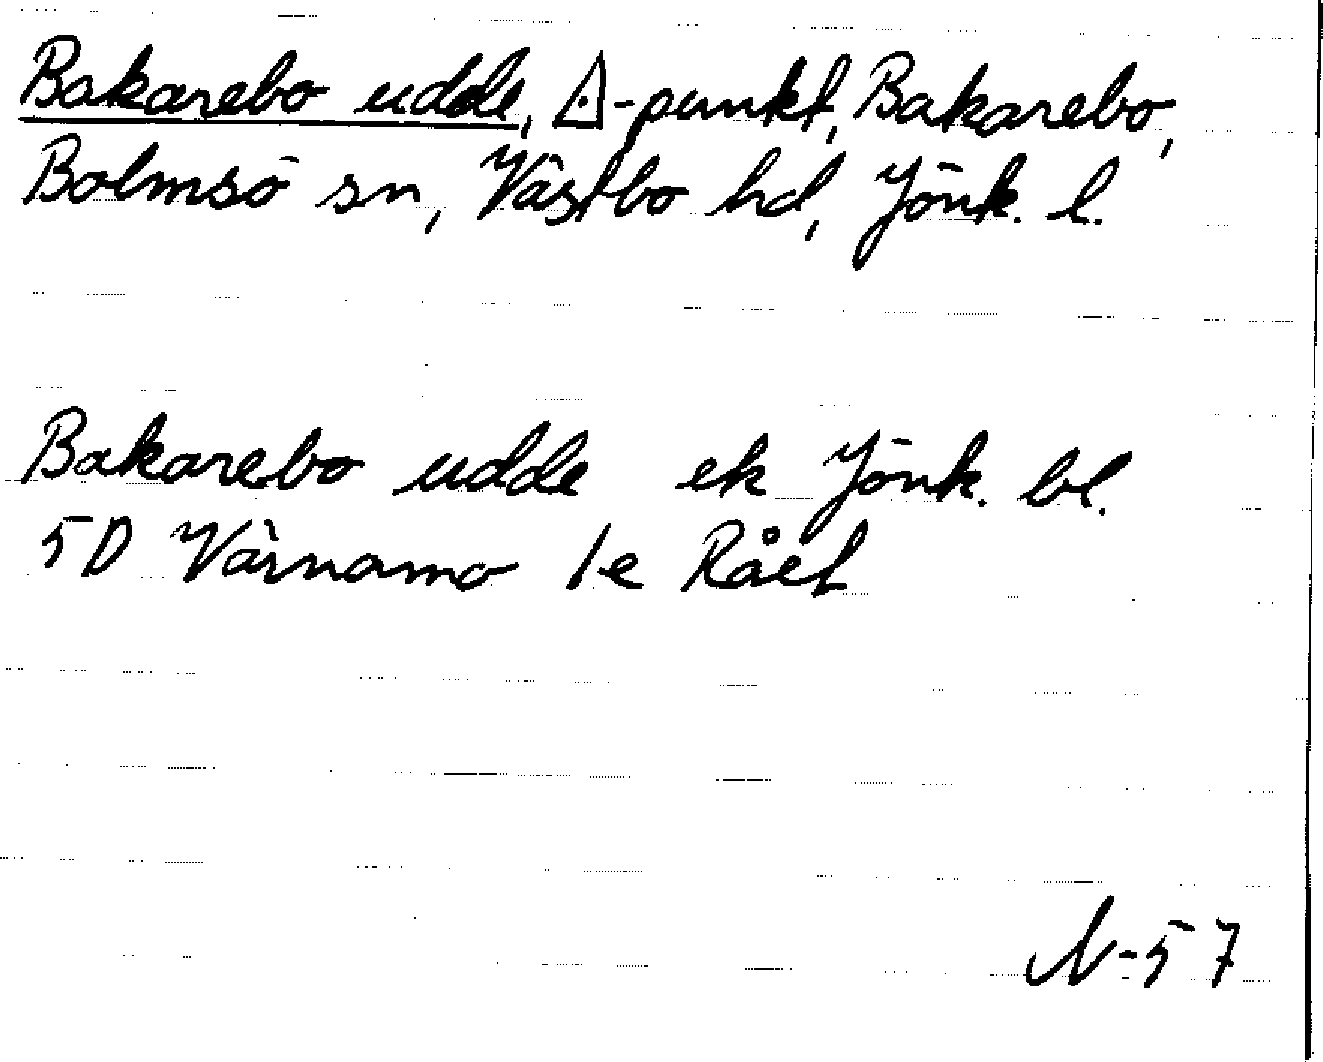 Bakarebo udde, ◬-punkt, Bakarebo,
Bolmsö sn, Västbo hd, Jönk. l.
Bakarebo udde ek Jönk. bl.
5D Värnamo 1e Rået
N-57